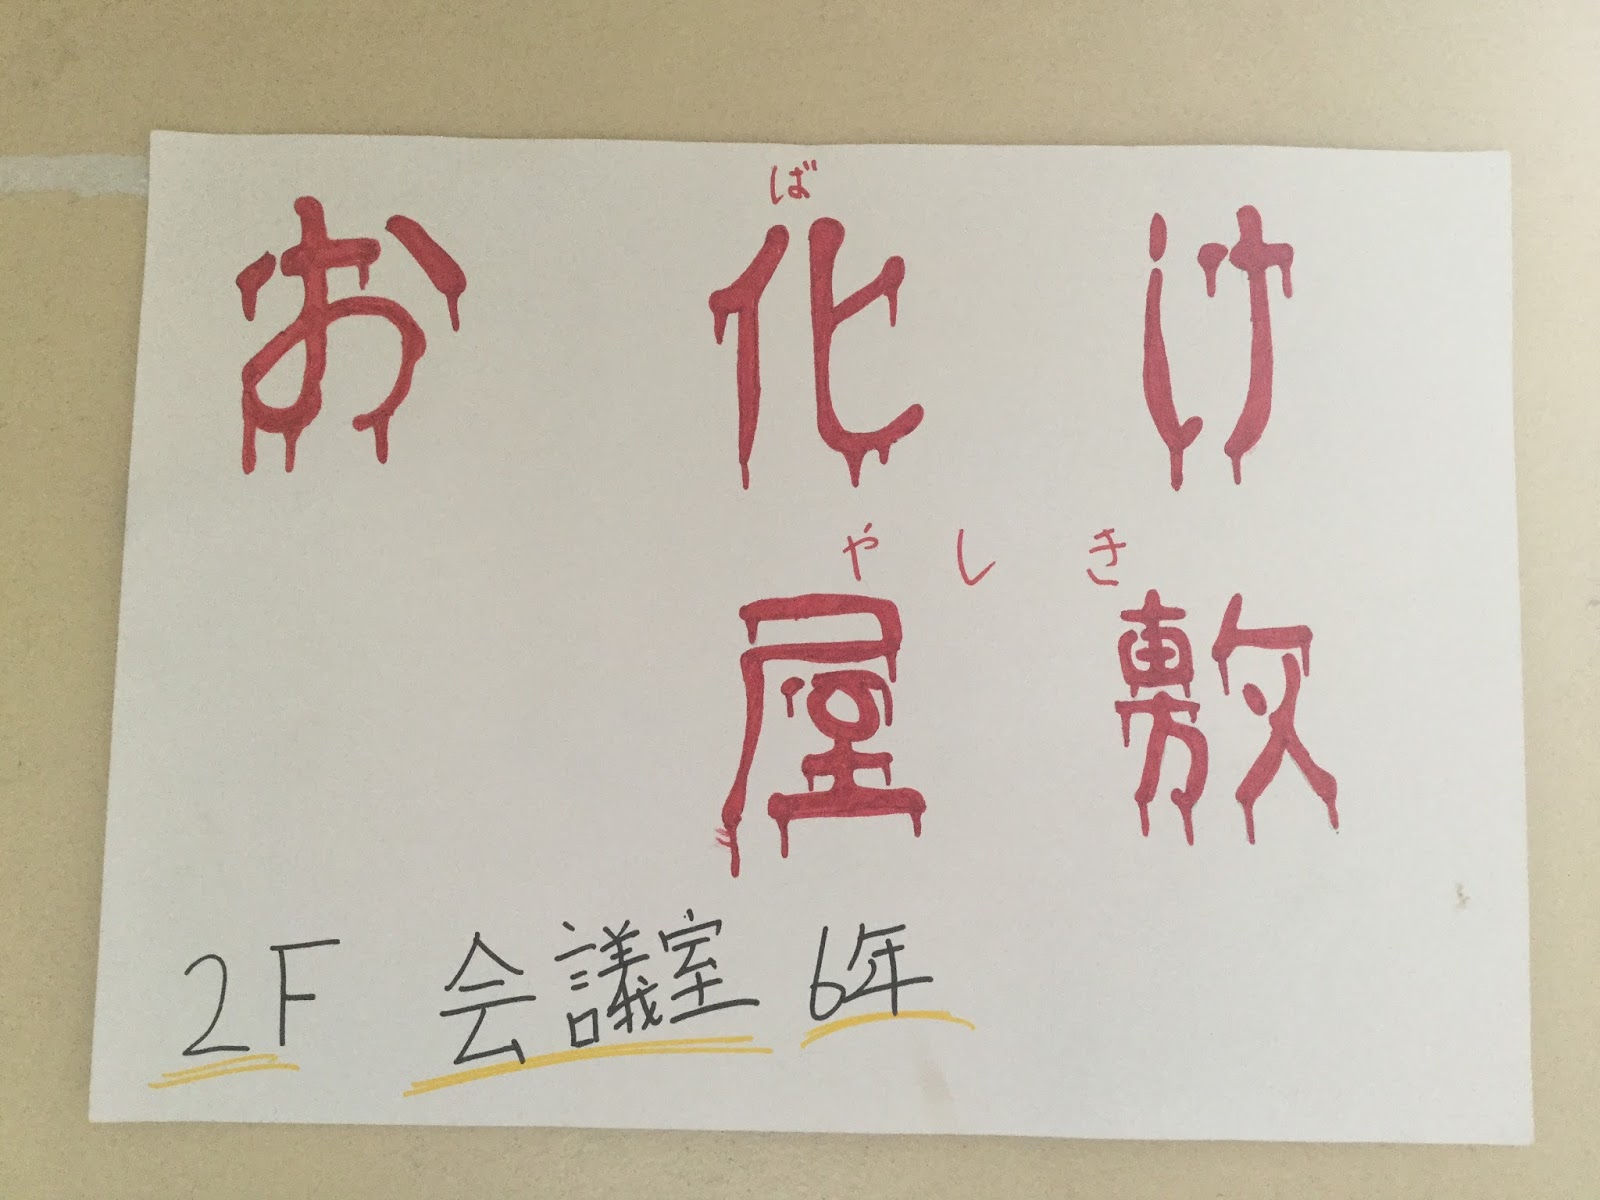 ば
お化け
やしき
屋敷
2F 会議室 6年